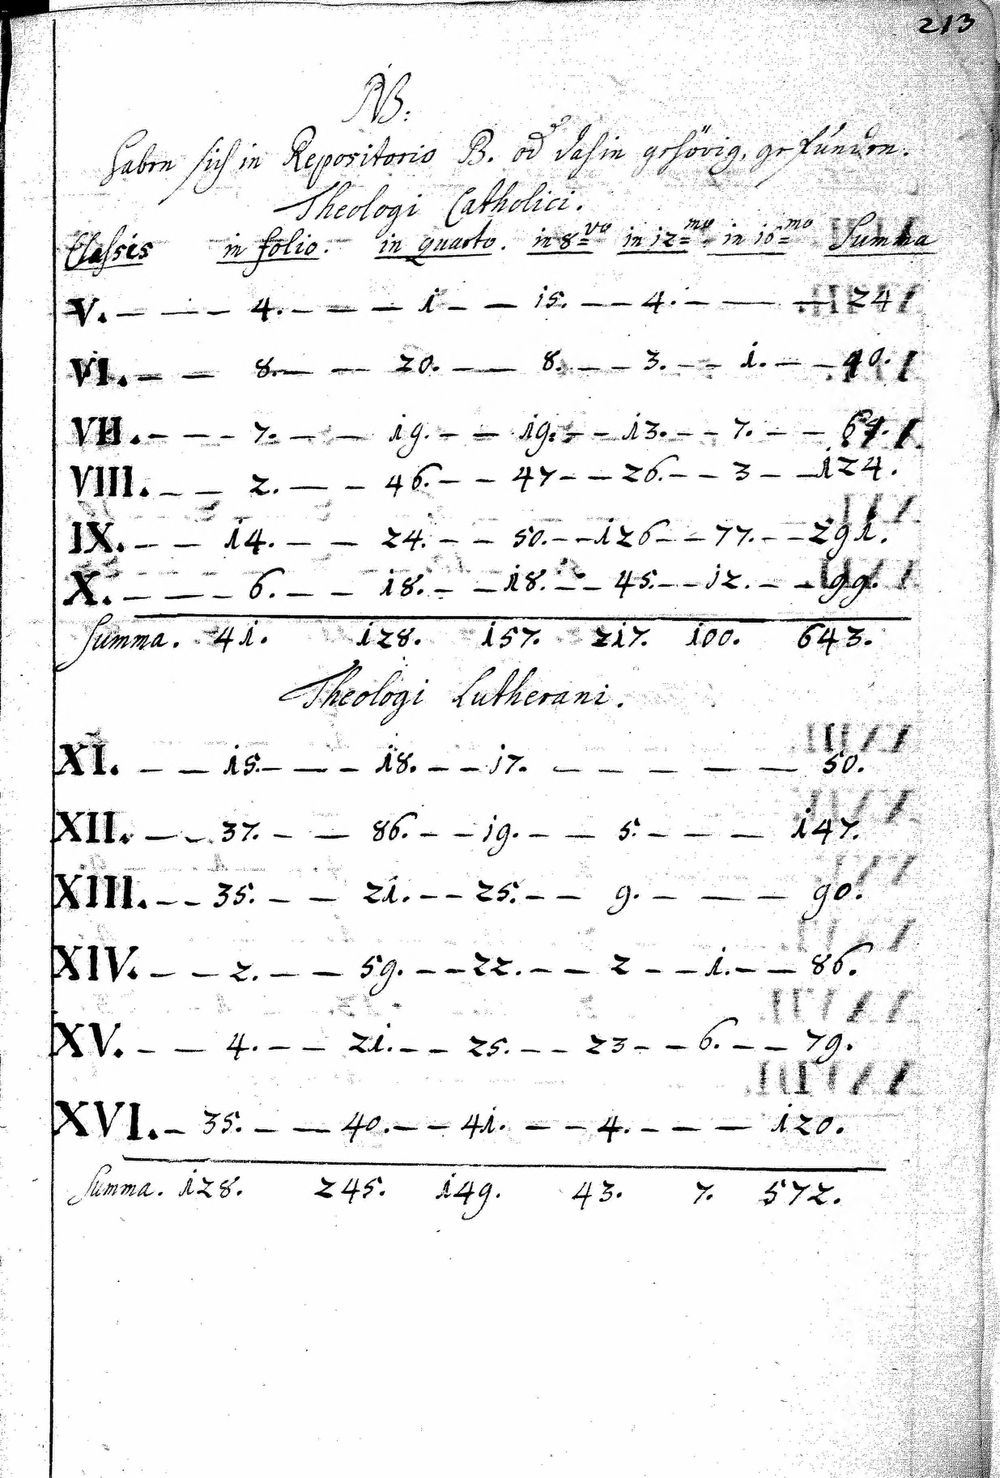 213
NB:
Haben sich in Repositorio B. od dahin gehörig, gefunden.
Theologi Catholici.
Classis in folio. in quarto. in 8vo in 12mo in 16mo Summa
V. — — — 4. — — — 1 — — 15. — — 4. — — — 24
VI. — — 8. — — 20. — — 8. — — 3. — — 1. — — 40.
VII. — — — 7. — — — 19. — — 19. — — 13. — — 7. — — 64.
VIII. — — 2. — — 46. — — 47 — — 26. — — 3 — — 124.
IX. — — 14. — — 24. — — 50. — — 126 — — 77. — — 291.
X. — — — 6. — — 18. — — 18. — — 45. — — 12. — — 99.
Summa. 41. 128. 157. 217. 100. 643.
Theologi Lutherani.
XI. — — 15. — — — 18. — — 17. — — — — — 50.
XII. — — 37. — — 86. — — 19. — — 5. — — — 147.
XIII. — — 35. — — 21. — — 25. — — 9. — — — 90.
XIV. — — 2. — — 59. — — 22. — — 2 — — 1. — — 86.
XV. — — 4. — — 21. — — 25. — — 23 — — 6. — — 79.
XVI. — 35. — — 40. — — 41. — — 4. — — — 120.
Summa. 128. 245. 149. 43. 7. 572.